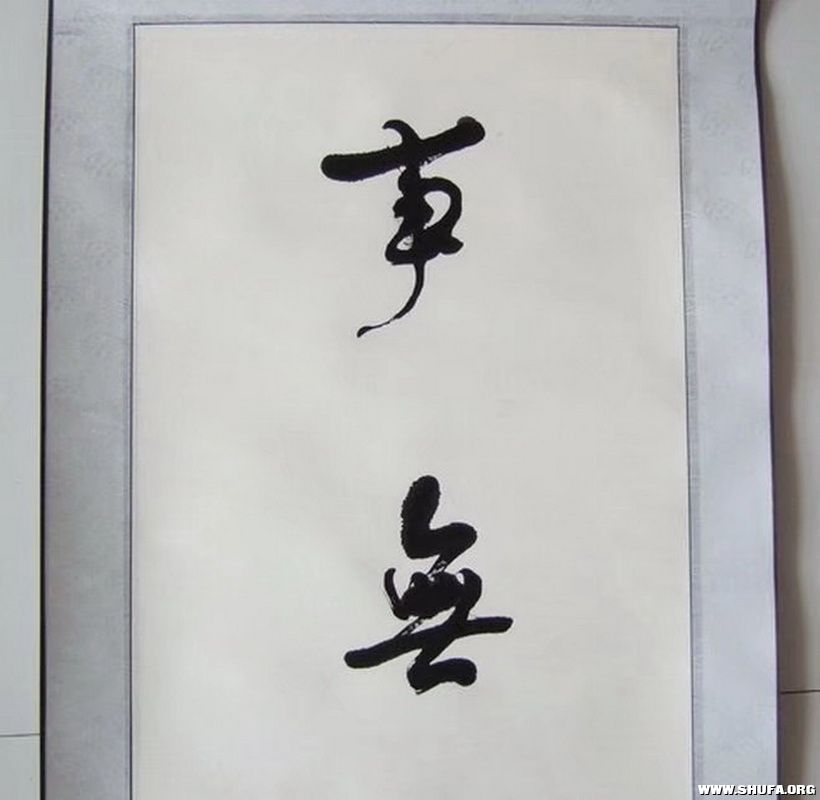 事無
WWW.SHUFA.ORG